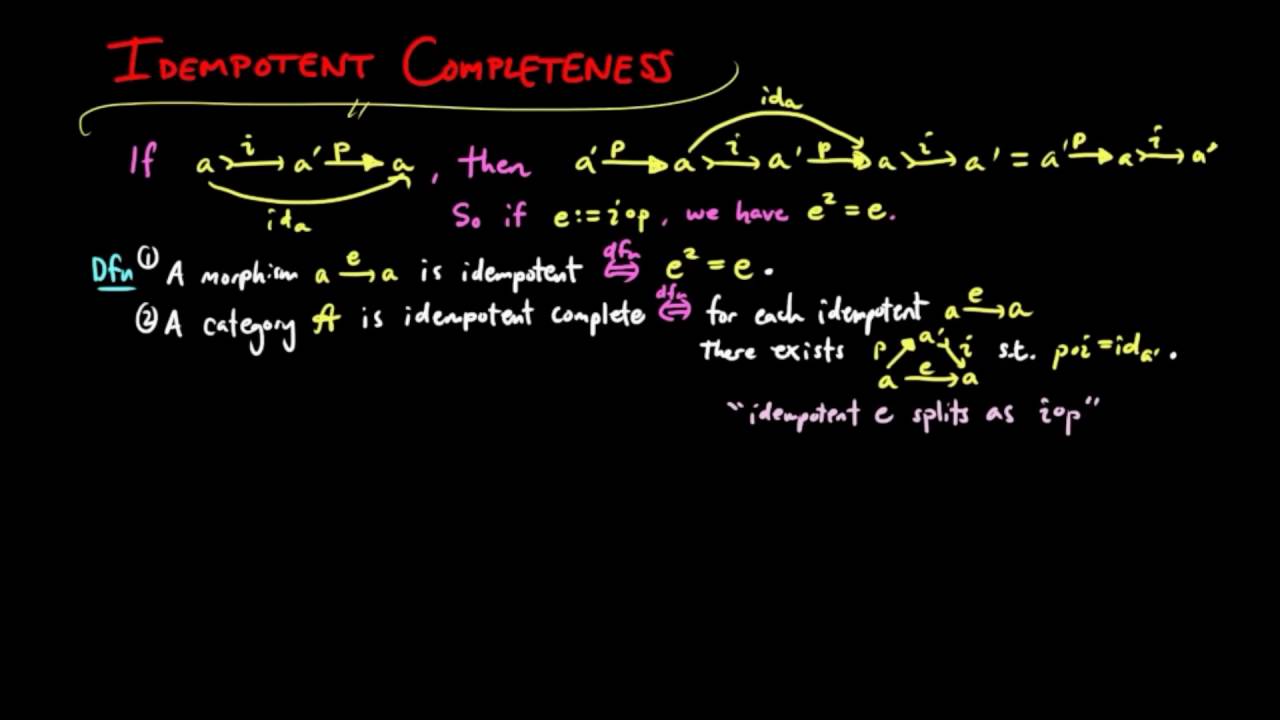 IDEMPOTENT COMPLETENESS
If a >-i-> a' -p->> a , then a' -p->> a >-i-> a' -p->> a >-i-> a' = a' -p->> a >-i-> a'
id_a id_a
So if e := i∘p, we have e² = e.
Dfn ① A morphism a -e-> a is idempotent ⇔ (dfn) e² = e .
② A category A is idempotent complete ⇔ (dfn) for each idempotent a -e-> a
There exists p a' i s.t. p∘i = id_a' .
a -e-> a
"idempotent e splits as i∘p"